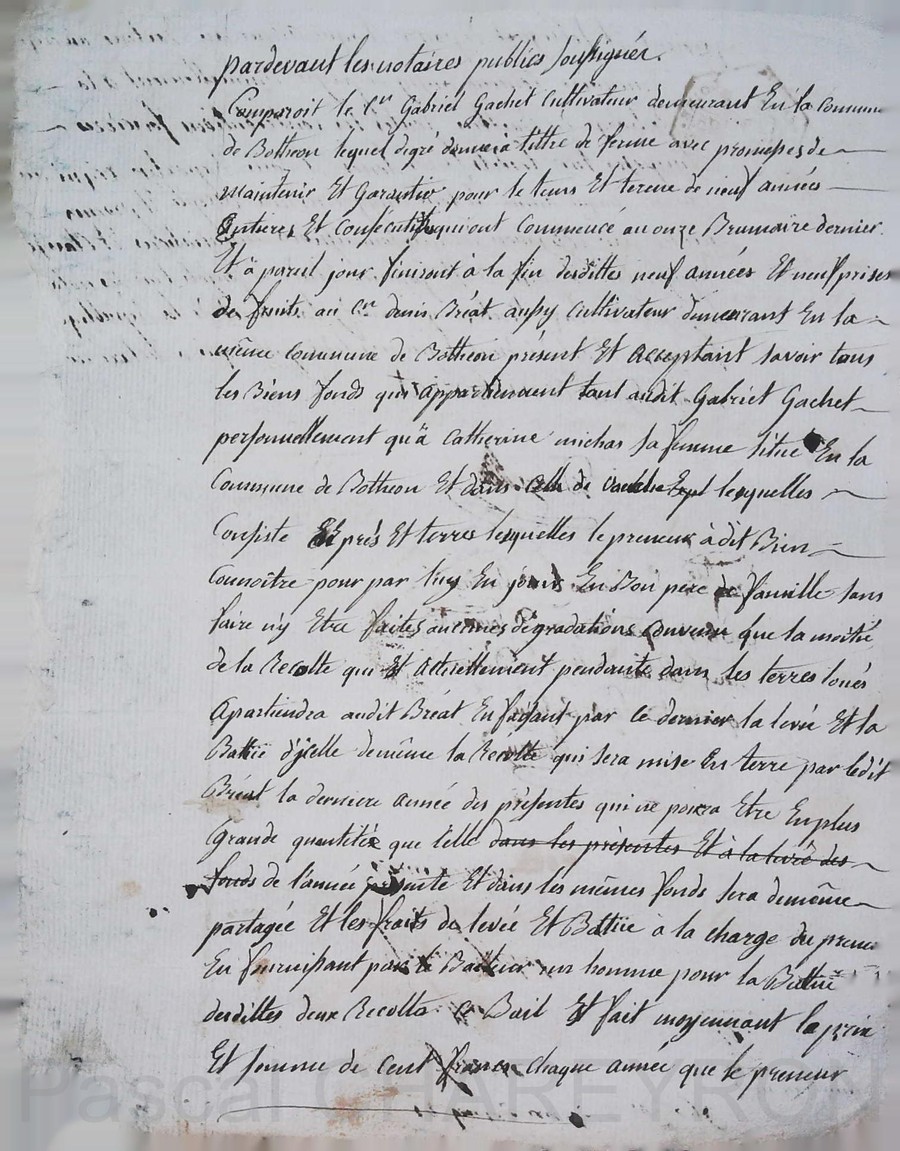 pardevant les notaires publics soussignés.
Comparoit le Cen Gabriel Gachet Cultivateur demeurant En la Commune
de Botheon lequel degré donne à tittre de ferme avec promesses de
maintenir Et Garantir pour le tems Et terme de neuf années
Entieres Et Consécutifs qui ont Commencé au onze Brumaire dernier.
Et à pareil jour finiront à la fin desdittes neuf années Et neuf prises
de fruits au Cen denis Bréat aussy Cultivateur demeurant En la
même Commune de Botheon présent Et Acceptant savoir tous
les Biens fonds qui appartiennent tant audit Gabriel Gachet
personnellement qu'à Catherine michas sa femme situé En la
Commune de Botheon Et dans Celle de lesquelles
Consiste En prés Et terres lesquelles le preneur à dit Bien
Connoître pour par luy En jouir En Bon pere de famille sans
faire n'y Etre faites aucunes dégradations Convenu que la moitié
de la Recolte qui Est Actuellement pendante dans les terres loués
Apartiendra audit Bréat En faisant par Ce dernier la levée Et la
Battüe d'jcelle demême la Récolte qui sera mise En terre par ledit
Bréat la derniere Année des présentes qui ne poura Etre En plus
Grande quantitée que Celle dans les présentes Et à la livré des
fonds de l'année présente Et dans les mêmes fonds sera demême
partagée Et les fraits de levée Et Battüe à la charge du preneur
En fournissant par le Bailleur un homme pour la Battüe
desdittes deux Recoltes Ce Bail Est fait moyennant le prix
Et somme de Cent francs chaque année que le preneur
Pascal CHAREYRON